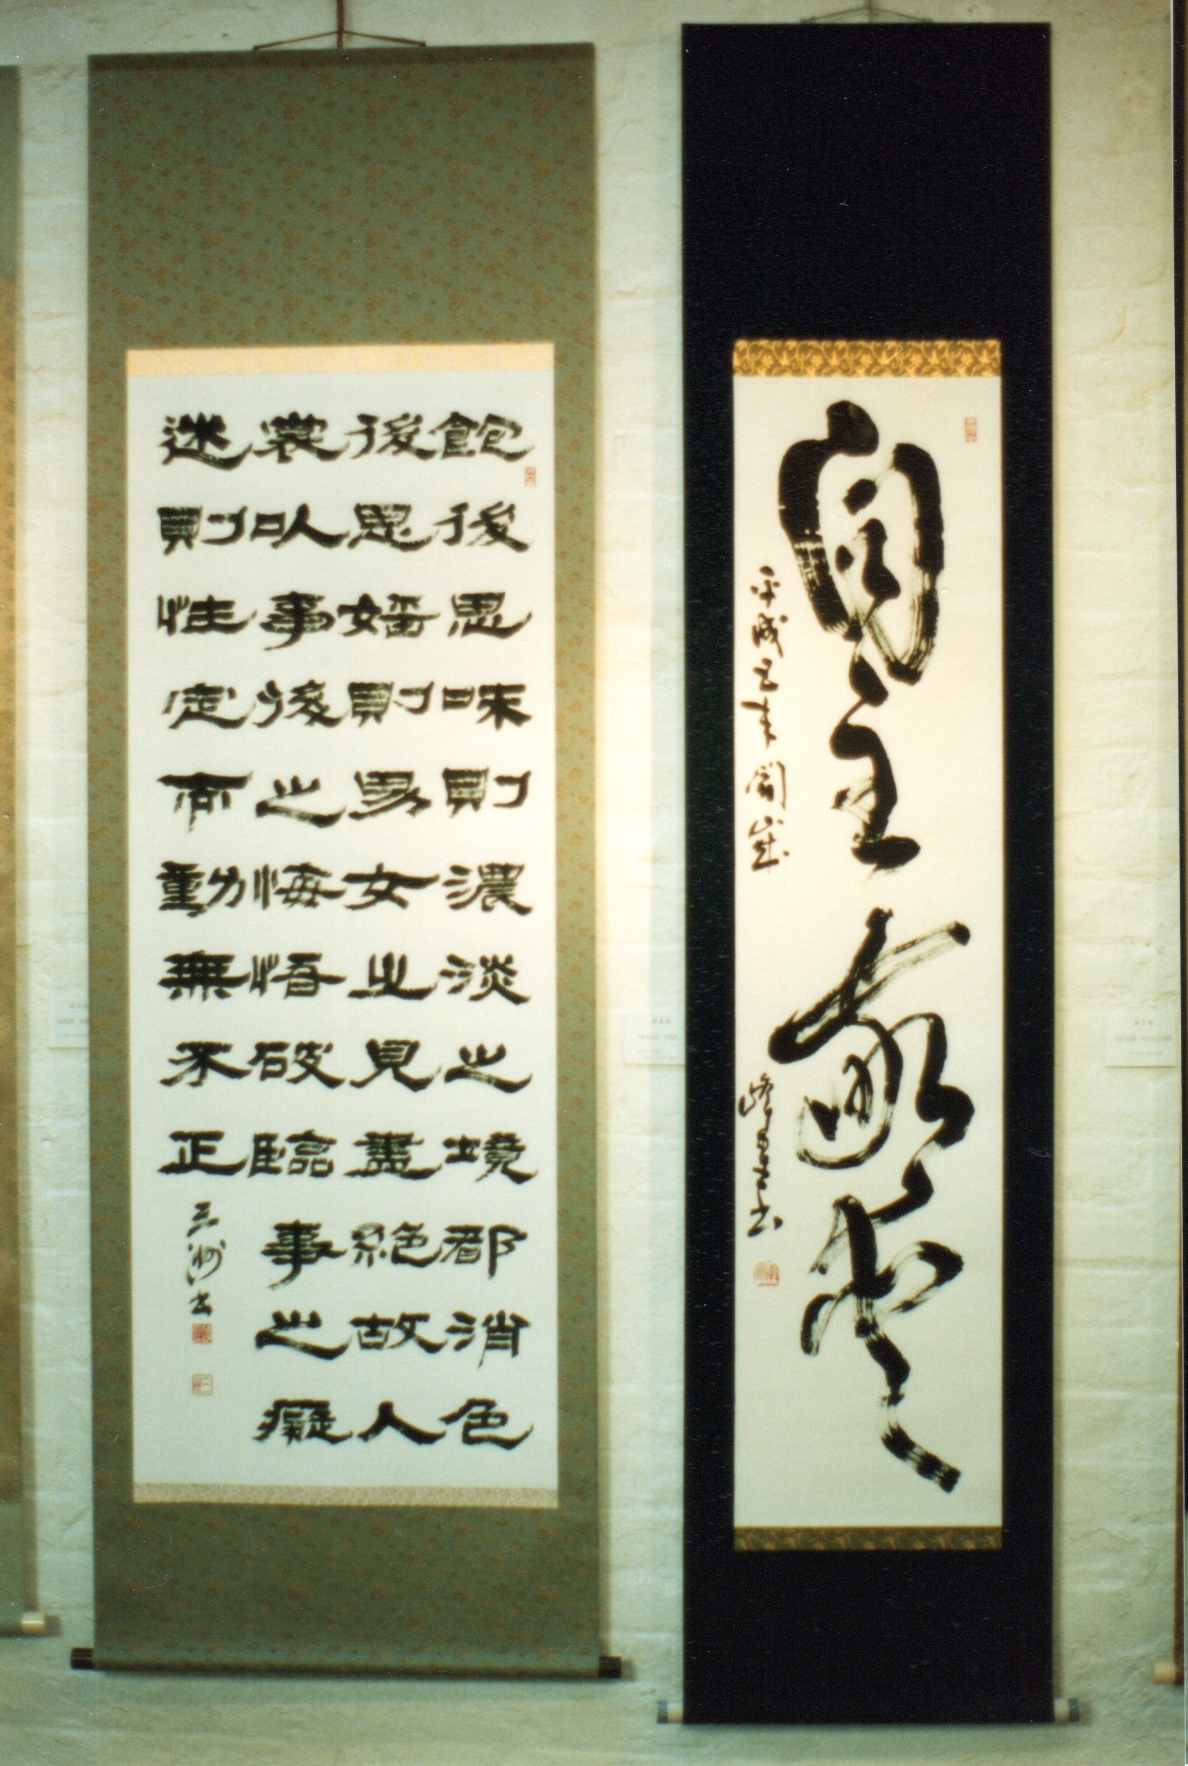 自主
平成五年
飽後思味則濃淡之境都消色
後思婬則男女之見盡絶故人
裳以事後之悔悟破臨事之癡
迷則性定而動無不正
三洲書